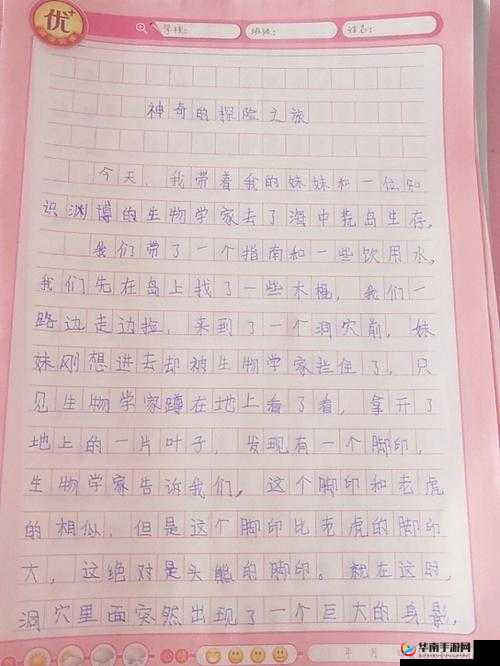 优
学校: 班级: 姓名:
神奇的探险之旅
今天，我带着我的妹妹和一位知
识渊博的生物学家去了海中荒岛生存。
我们带了一个指南和一些饮用水，
我们先在岛上找了一些木棍，我们一
路边走边捡，来到了一个洞穴前，妹
妹刚想进去却被生物学家拦住了，只
见生物学家蹲在地上看了看，拿开了
地上的一片叶子，发现有一个脚印，
生物学家告诉我们，这个脚印和老虎
的相似，但是这个脚印比老虎的脚印
大，这绝对是头熊的脚印。就在这时，
洞穴里面突然出现了一个巨大的身影，
年 月
华南手游网